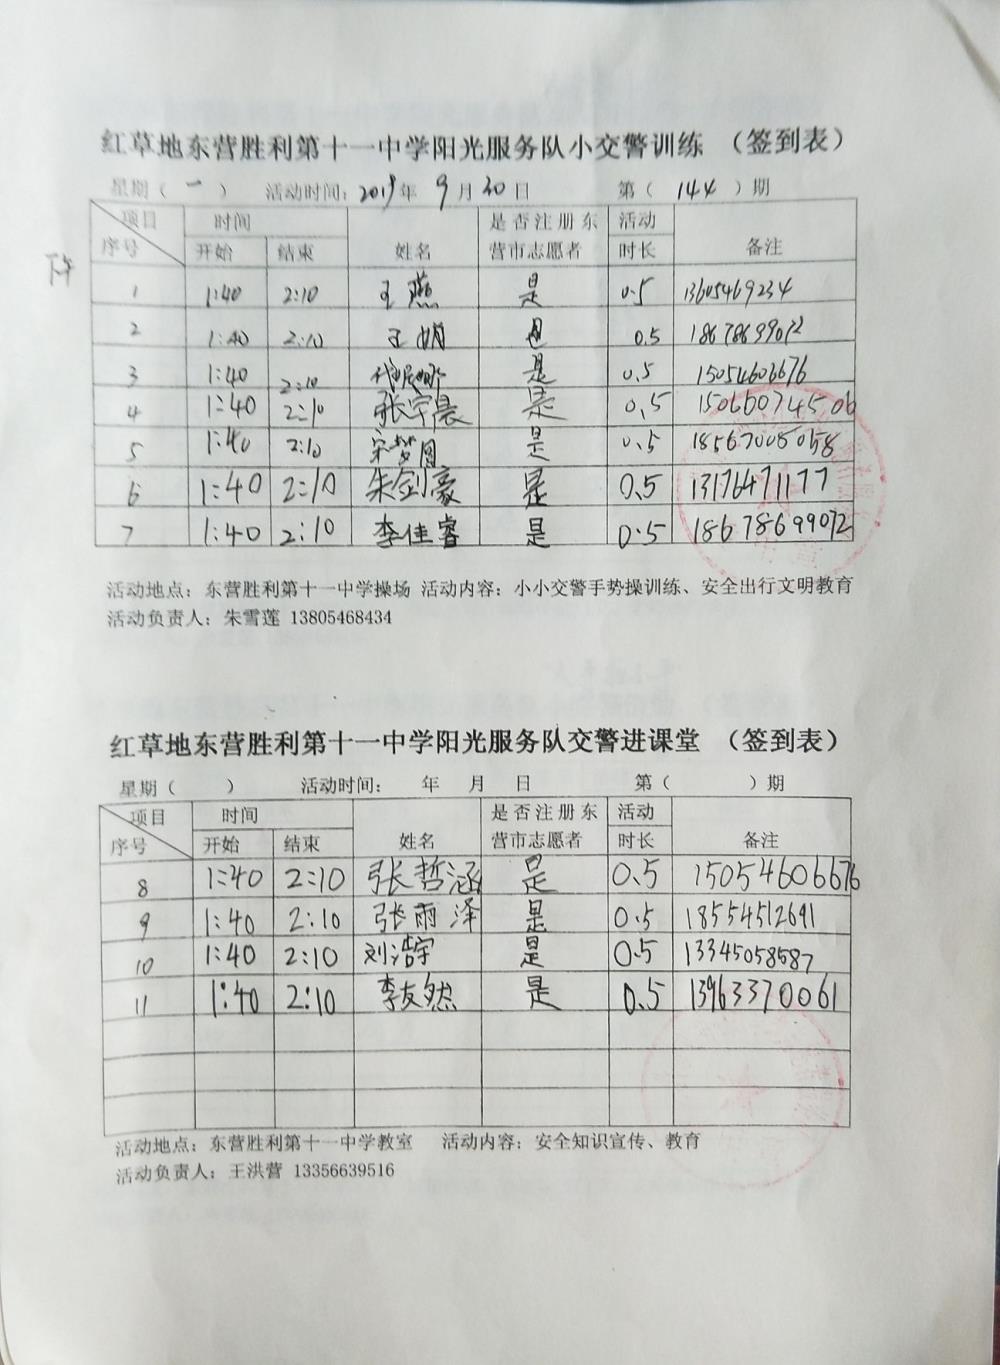 红草地东营胜利第十一中学阳光服务队小交警训练 （签到表）
星期（ 一 ） 活动时间：2019年 9月 30日 第（ 144 ）期
下午
项目 时间 是否注册东 活动
序号 开始 结束 姓名 营市志愿者 时长 备注
1 1:40 2:10 王燕 是 0.5 13605469234
2 1:40 2:10 王娟 是 0.5 18678699072
3 1:40 2:10 是 0.5 15054606676
4 1:40 2:10 张宇晨 是 0.5 15066074506
5 1:40 2:10 宋梦圆 是 0.5 18567005058
6 1:40 2:10 朱剑豪 是 0.5 13176471177
7 1:40 2:10 李佳睿 是 0.5 18678699072
活动地点：东营胜利第十一中学操场 活动内容：小小交警手势操训练、安全出行文明教育
活动负责人：朱雪莲 13805468434
红草地东营胜利第十一中学阳光服务队交警进课堂 （签到表）
星期（ ） 活动时间： 年 月 日 第（ ）期
项目 时间 是否注册东 活动
序号 开始 结束 姓名 营市志愿者 时长 备注
8 1:40 2:10 张哲涵 是 0.5 15054606676
9 1:40 2:10 张雨泽 是 0.5 18554512691
10 1:40 2:10 刘浩宇 是 0.5 13345058587
11 1:40 2:10 李友然 是 0.5 13963370061
活动地点：东营胜利第十一中学教室 活动内容：安全知识宣传、教育
活动负责人：王洪营 13356639516